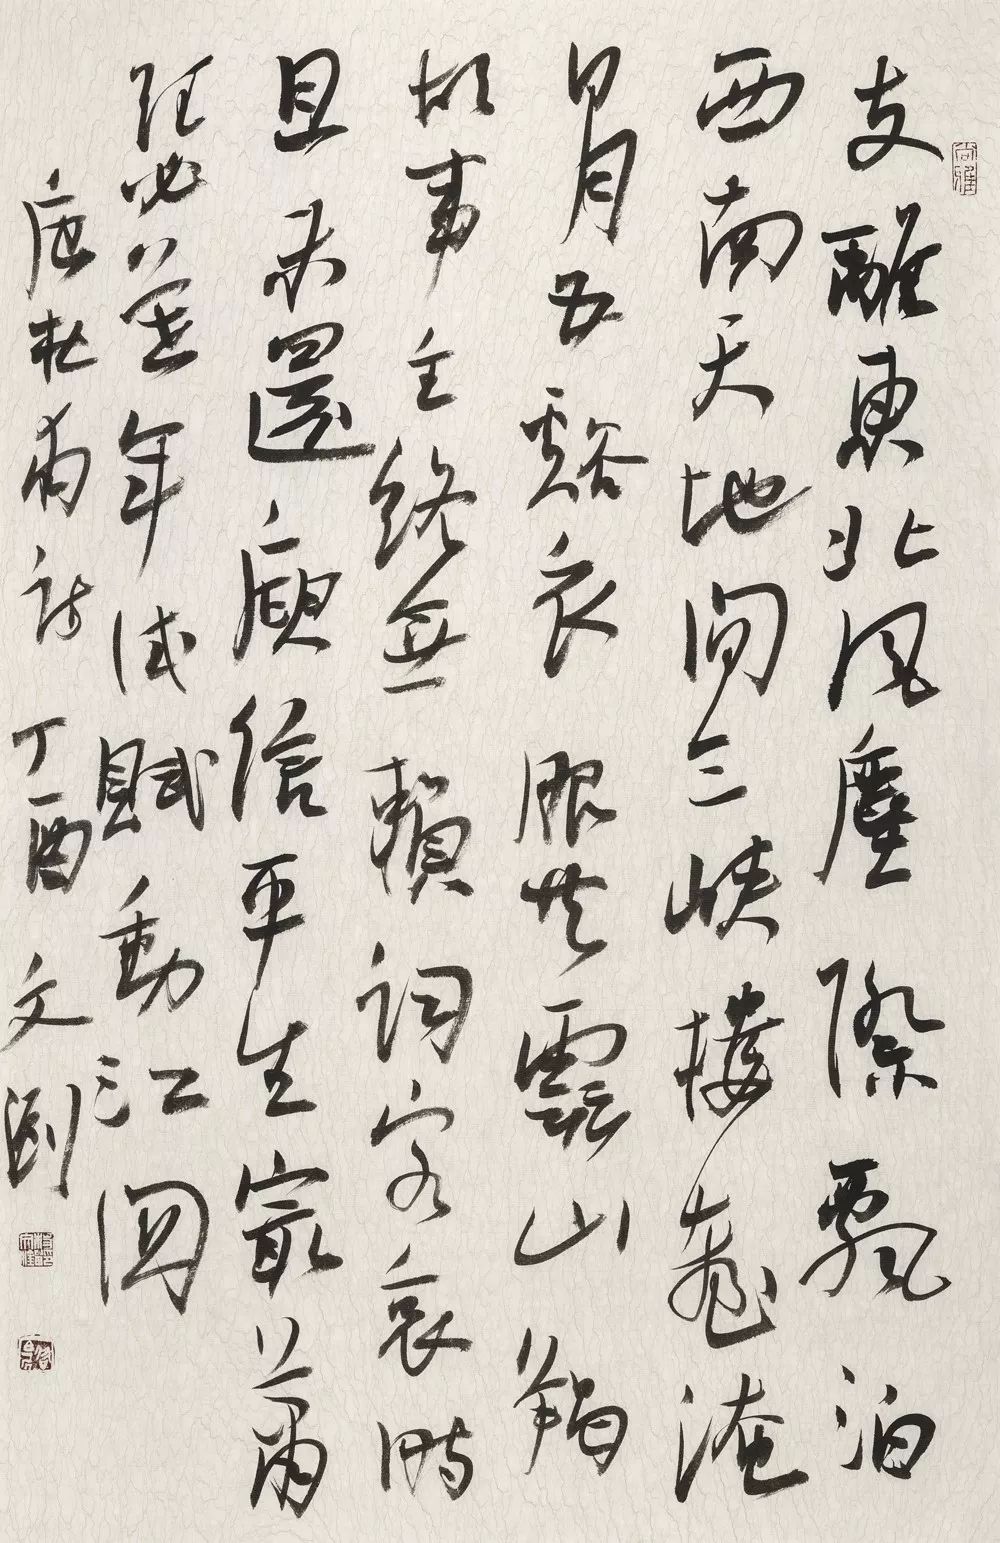 尚雅
支離東北風塵際飄泊
西南天地間三峽樓臺淹
日月五谿衣服共雲山羯
胡事主終無賴詞客哀時
且未還庾信平生最蕭
瑟暮年詩賦動江關
唐杜甫詩 丁酉 文